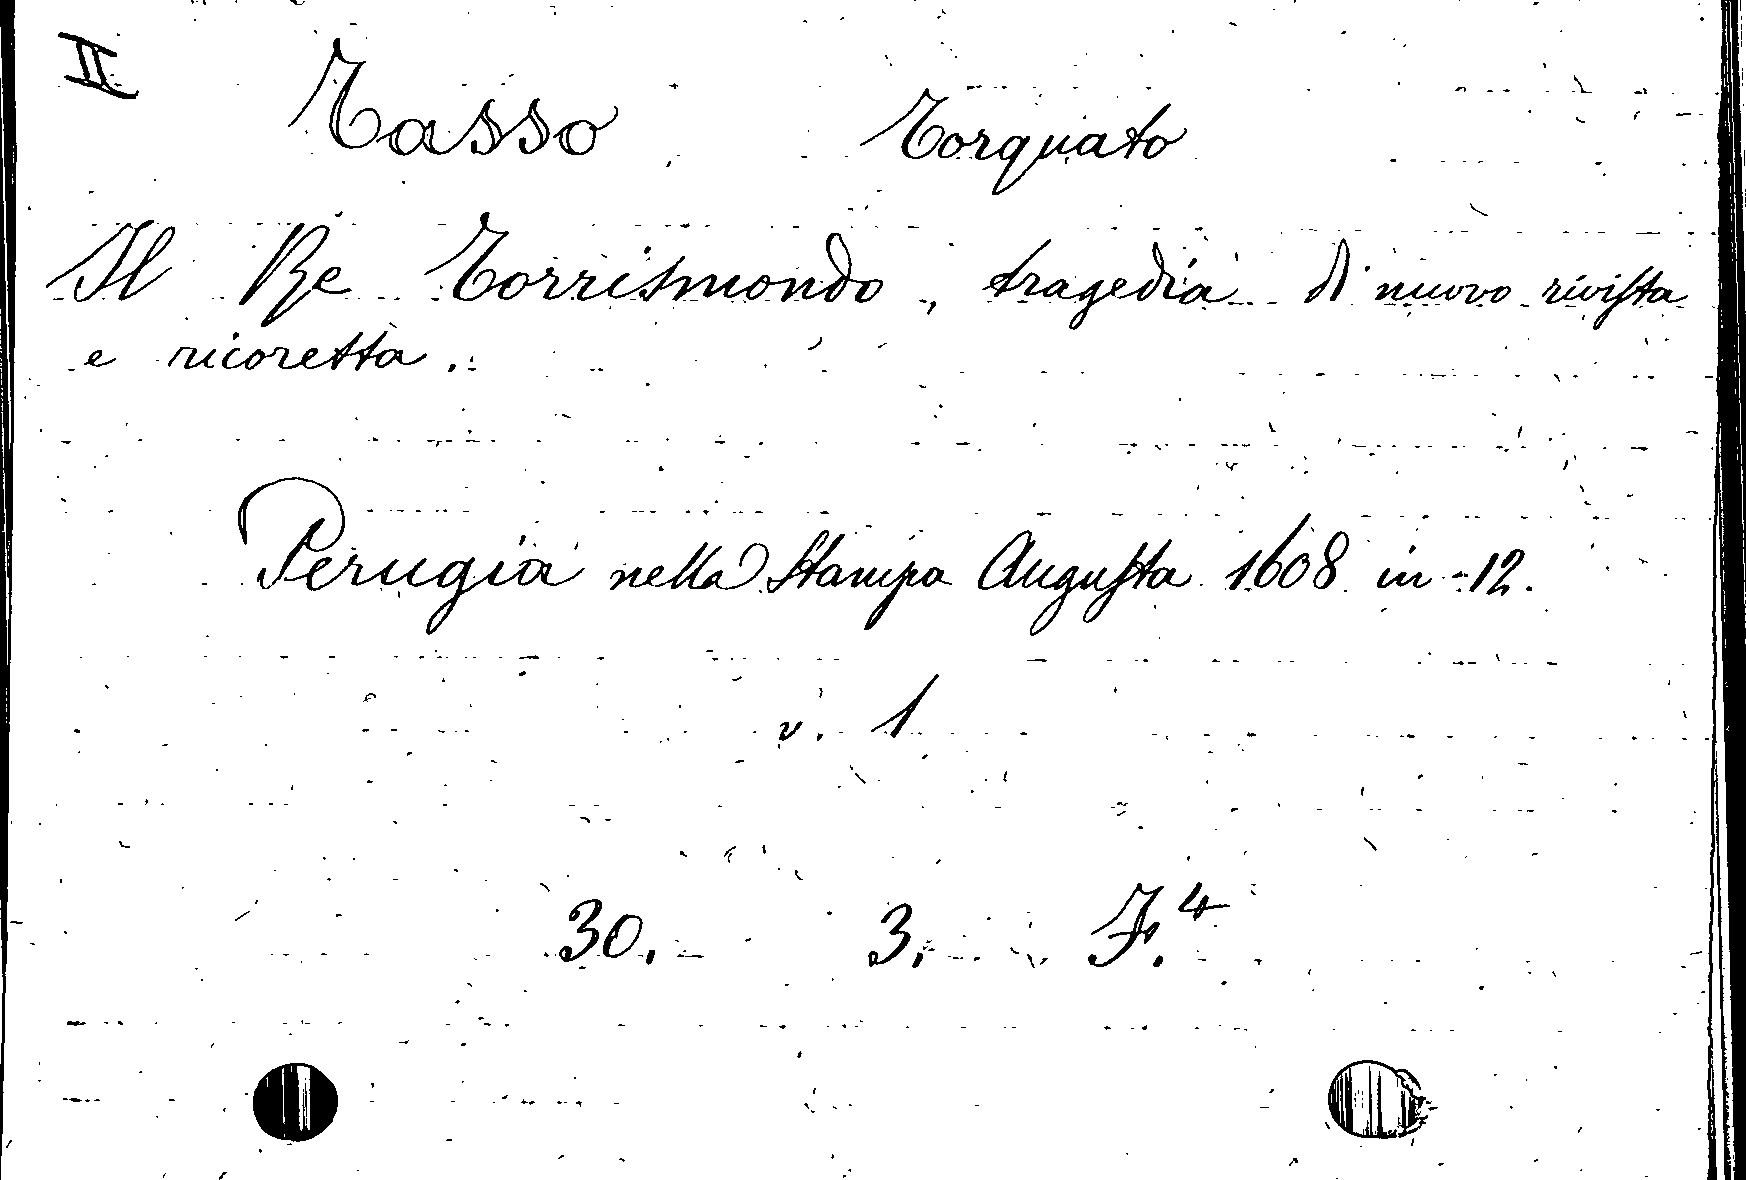 II Tasso Torquato
Il Re Torrismondo, tragedia di nuovo rivista
e ricoretta.
Perugia nella Stampa Augusta 1608 in-12.
v. 1
30. 3. F.4